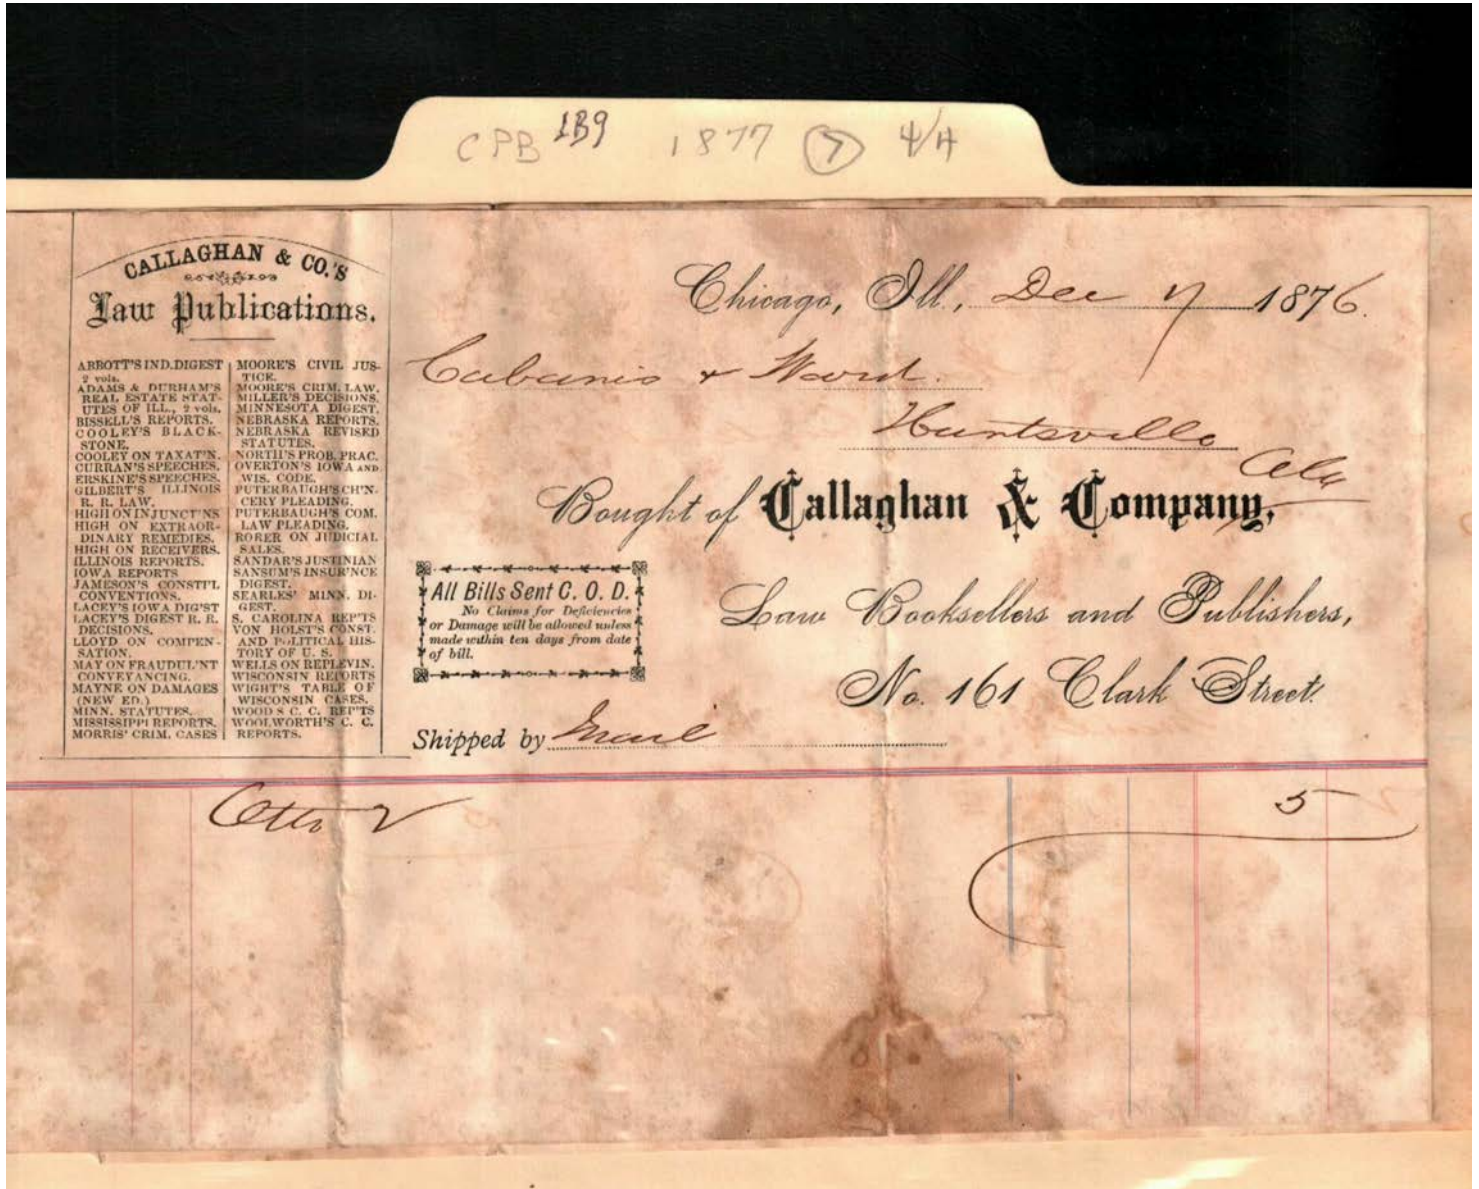 CPB 1B9 1877 7 4/4
CALLAGHAN & CO.'S
Law Publications.
ABBOTT'S IND. DIGEST
2 vols.
ADAMS & DURHAM'S
REAL ESTATE STAT-
UTES OF ILL., 2 vols.
BISSELL'S REPORTS.
COOLEY'S BLACK-
STONE.
COOLEY ON TAXAT'N.
CURRAN'S SPEECHES.
ERSKINE'S SPEECHES.
GILBERT'S ILLINOIS
R. R. LAW.
HIGH ON INJUNCT'NS
HIGH ON EXTRAOR-
DINARY REMEDIES.
HIGH ON RECEIVERS.
ILLINOIS REPORTS.
IOWA REPORTS
JAMESON'S CONSTI'L
CONVENTIONS.
LACEY'S IOWA DIG'ST
LACEY'S DIGEST R. R.
DECISIONS.
LLOYD ON COMPEN-
SATION.
MAY ON FRAUDUL'NT
CONVEYANCING.
MAYNE ON DAMAGES
(NEW ED.)
MINN. STATUTES.
MISSISSIPPI REPORTS.
MORRIS' CRIM. CASES
MOORE'S CIVIL JUS-
TICE.
MOORE'S CRIM. LAW.
MILLER'S DECISIONS.
MINNESOTA DIGEST.
NEBRASKA REPORTS.
NEBRASKA REVISED
STATUTES.
NORTH'S PROB. PRAC.
OVERTON'S IOWA AND
WIS. CODE.
PUTERBAUGH'S CH'N-
CERY PLEADING.
PUTERBAUGH'S COM.
LAW PLEADING.
RORER ON JUDICIAL
SALES.
SANDAR'S JUSTINIAN
SANSUM'S INSUR'NCE
DIGEST.
SEARLES' MINN. DI-
GEST.
S. CAROLINA REP'TS
VON HOLST'S CONST.
AND POLITICAL HIS-
TORY OF U. S.
WELLS ON REPLEVIN.
WISCONSIN REPORTS
WIGHT'S TABLE OF
WISCONSIN CASES.
WOODS C. C. REP'TS
WOOLWORTH'S C. C.
REPORTS.
Chicago, Ill., Dec 7 1876.
Cabanis & Ward.
Huntsville
Ala
Bought of Callaghan & Company,
All Bills Sent C. O. D.
No Claims for Deficiencies
or Damage will be allowed unless
made within ten days from date
of bill.
Law Booksellers and Publishers,
No. 161 Clark Street.
Shipped by Mail
Otto 2 5